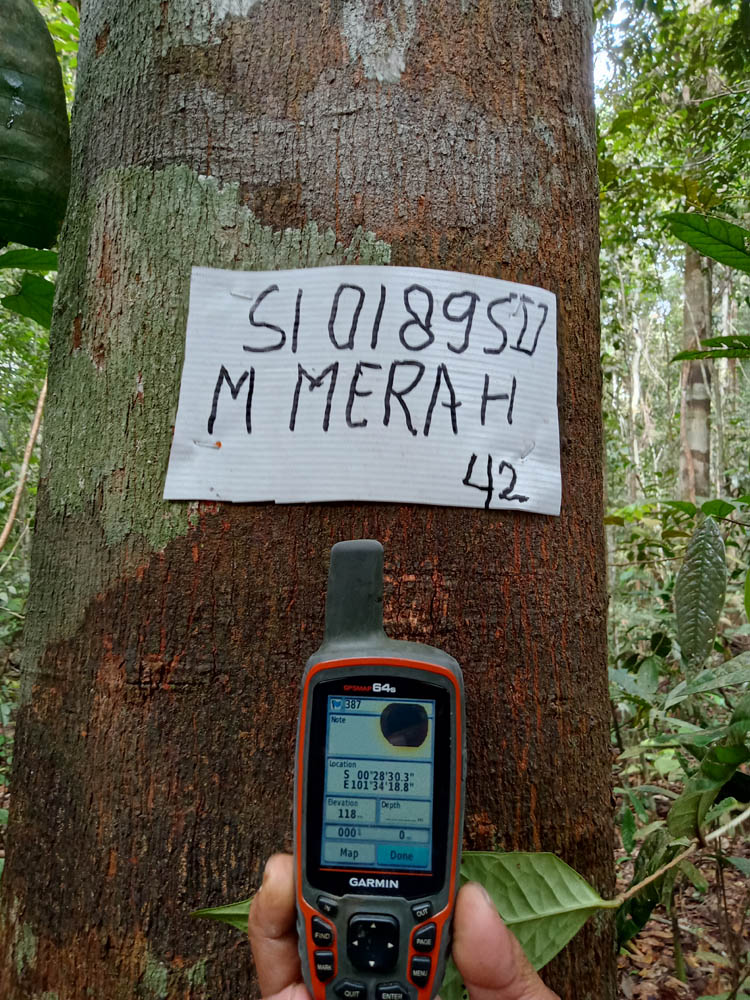 S1 018950
M MERAH
42
GPSMAP 64s
387
Note
Location
S 00°28'30.3"
E101°34'18.8"
Elevation
Depth
118
0
Map
Done
GARMIN
IN
OUT
FIND
PAGE
MARK
MENU
QUIT
ENTER